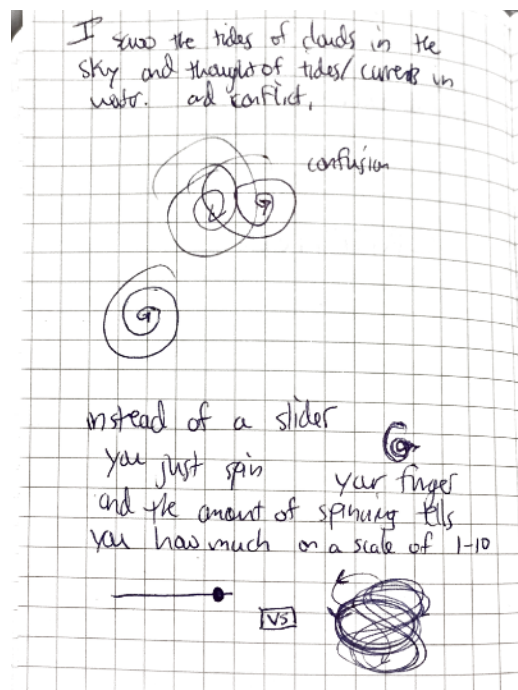 I saw the tides of clouds in the
sky and thought of tides/currents in
water. and conflict,
confusion
instead of a slider
you just spin your finger
and the amount of spinning tells
you how much on a scale of 1-10
VS